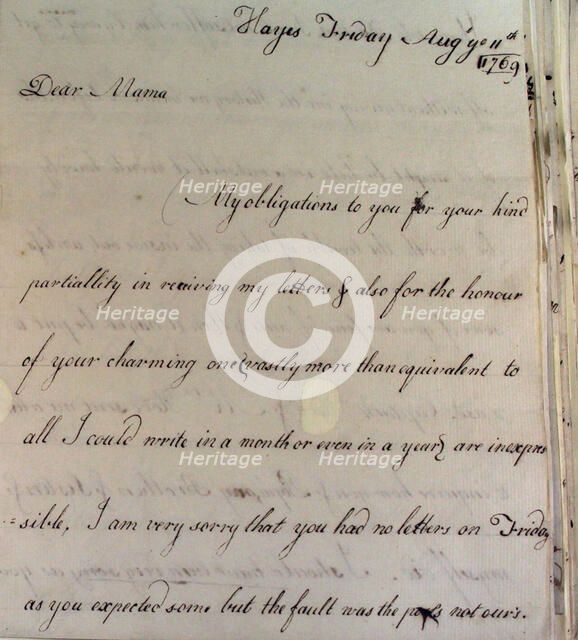 Hayes Friday Augt ye 11th
1769
Dear Mama
My obligations to you for your kind
partiallity in reciving my letters & also for the honour
of your charming one (vastly more than equivalent to
all I could write in a month or even in a year) are inexpres
=sible, I am very sorry that you had no letters on Friday
as you expected some but the fault was the posts not ours.
Heritage Heritage Heritage
Heritage Heritage Heritage
Heritage Heritage Heritage
©